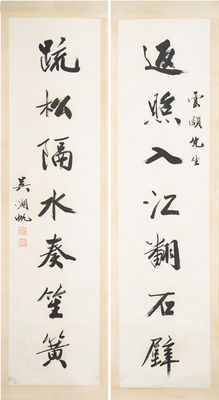 雲頤先生
返照入江翻石壁
疏松隔水奏笙簧
吳湖帆